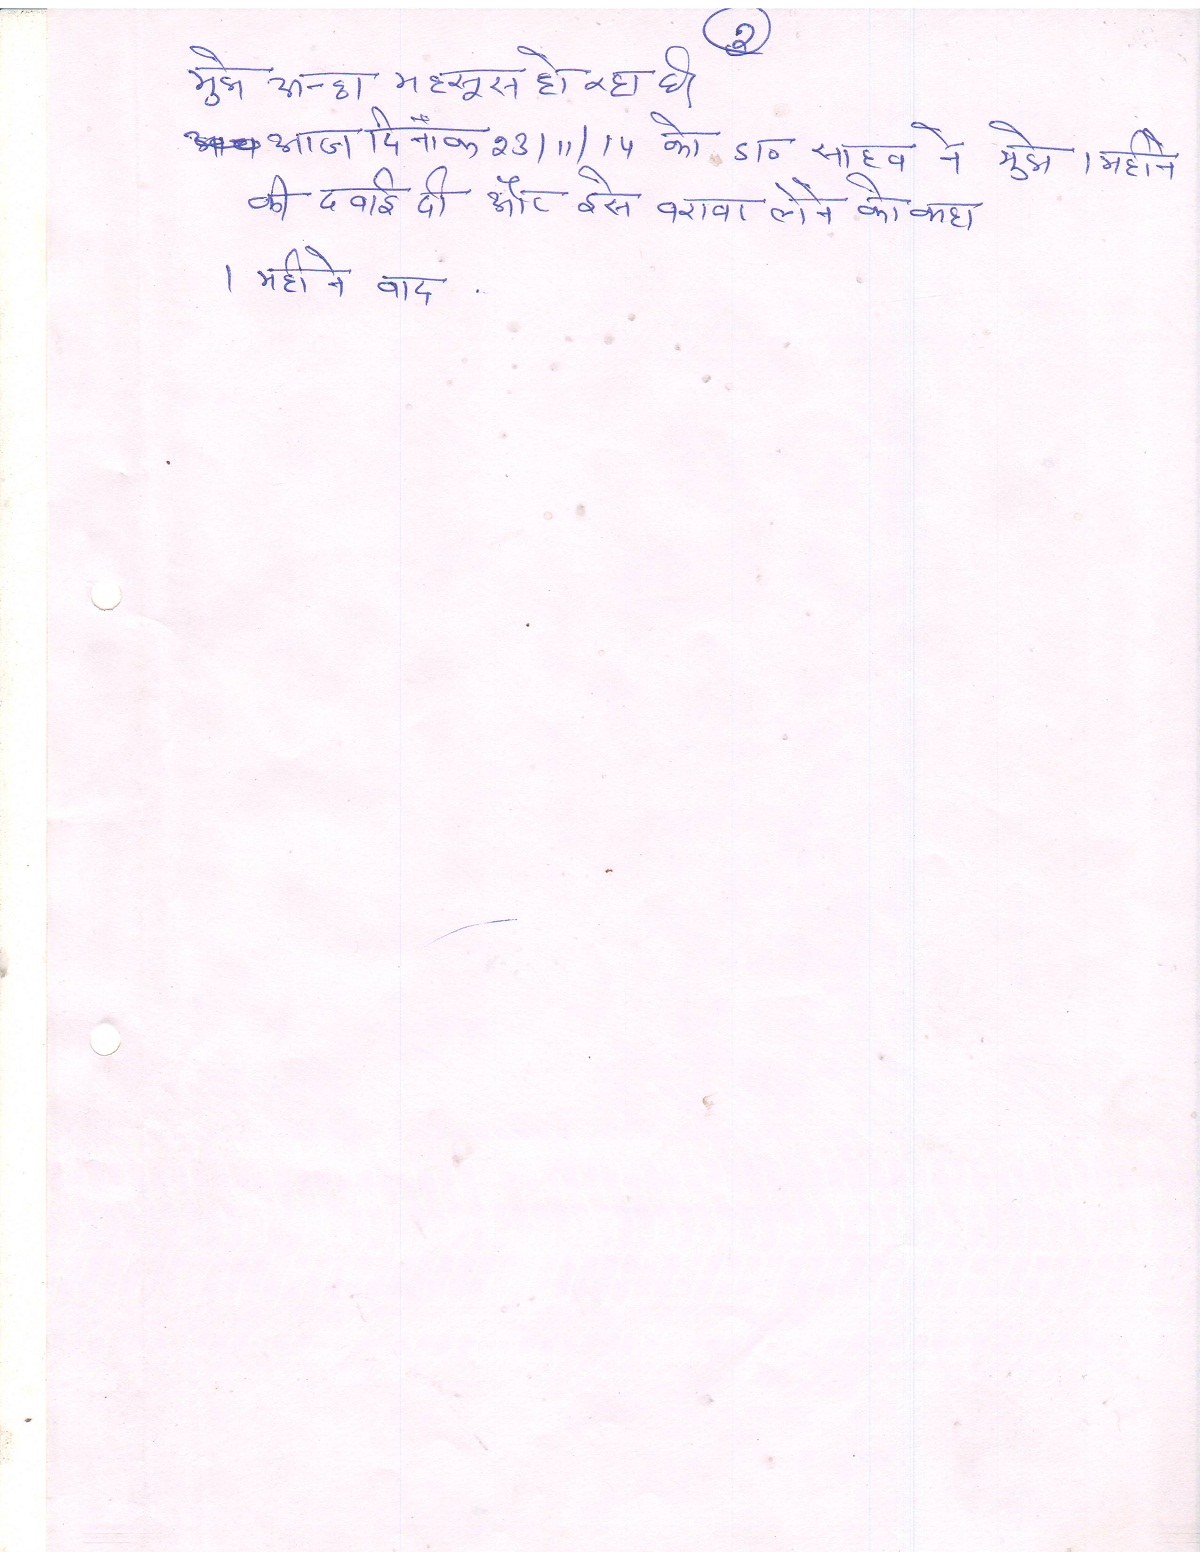 २
मुझे अच्छा महसूस हो रहा थी
आज दिनाँक 23/11/14 को डा० साहव ने मुझे 1 महीने
की दवाई दी और इसे वरावर लेने को कहा
1 महीने वाद .